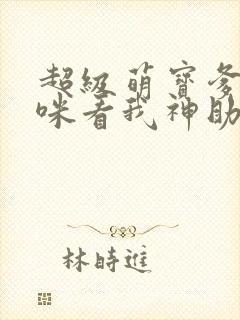 超级萌宝爹
咪看我神助
林時進